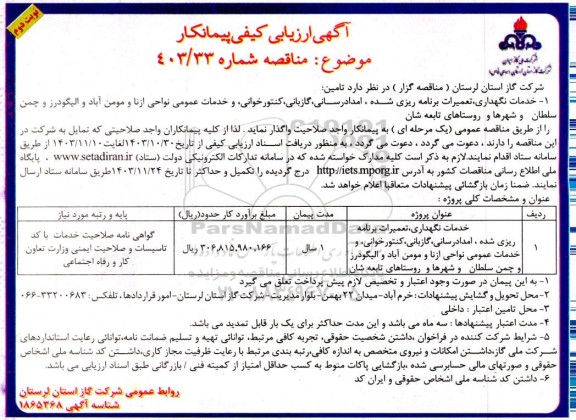 نوبت دوم
آگهی ارزیابی کیفی پیمانکار
موضوع: مناقصه شماره ۴۰۳/۳۳
شرکت گاز استان لرستان ( مناقصه گزار ) در نظر دارد تامین:
۱- خدمات نگهداری،تعمیرات برنامه ریزی شده ، امدادرسانی،گازبانی،کنتورخوانی، و خدمات عمومی نواحی ازنا و مومن آباد و الیگودرز و چمن
سلطان و شهرها و روستاهای تابعه شان
را از طریق مناقصه عمومی (یک مرحله ای ) به پیمانکار واجد صلاحیت واگذار نماید . لذا از کلیه پیمانکاران واجد صلاحیتی که تمایل به شرکت در
این مناقصه را دارند ، دعوت می گردد ، دعوت می گردد ، به منظور دریافت اسناد ارزیابی کیفی از تاریخ۱۴۰۳/۱۰/۳۰لغایت۱۴۰۳/۱۱/۱۰ از طریق
سامانه ستاد اقدام نمایند.لازم به ذکر است کلیه مدارک خواسته شده که در سامانه تدارکات الکترونیکی دولت (ستاد) www.setadiran.ir ، پایگاه
ملی اطلاع رسانی مناقصات کشور به آدرس http://iets.mporg.ir درج گردیده را تکمیل و حداکثر تا تاریخ ۱۴۰۳/۱۱/۲۴ازطریق سامانه ستاد ارسال
نمایند. ضمنا زمان بازگشائی پیشنهادات متعاقبا اعلام خواهد شد.
عنوان و مشخصات کلی پروژه :
ردیف عنوان پروژه مدت پیمان مبلغ برآورد کار حدود(ریال) پایه و رتبه مورد نیاز
۱ خدمات نگهداری،تعمیرات برنامه
ریزی شده ، امدادرسانی،گازبانی،کنتورخوانی، و
خدمات عمومی نواحی ازنا و مومن آباد و الیگودرز
و چمن سلطان و شهرها و روستاهای تابعه شان
۱ سال
۳۰۶،۸۱۵،۹۸۰،۱۶۶ ریال
گواهی نامه صلاحیت خدمات با کد
تاسیسات و صلاحیت ایمنی وزارت تعاون
کار و رفاه اجتماعی
۱- به این پیمان در صورت وجود اعتبار و تخصیص لازم پیش پرداخت تعلق می گیرد
۲- محل تحویل و گشایش پیشنهادات: خرم آباد- میدان ۲۲ بهمن- بلوار مدیریت- شرکت گاز استان لرستان-امور قراردادها، تلفکس: ۳۳۲۰۰۶۸۳-۰۶۶
۳- محل تامین اعتبار : داخلی
۴- مدت اعتبار پیشنهادها : سه ماه می باشد و این مدت حداکثر برای یک بار قابل تمدید می باشد.
۵- شرایط شرکت کننده در فراخوان ،داشتن شخصیت حقوقی، تجربه کافی مرتبط، توانائی تهیه و تسلیم ضمانت نامه،توانائی رعایت استانداردهای
شرکت ملی گاز،داشتن امکانات و نیروی متخصص به اندازه کافی،رتبه بندی مرتبط با رعایت ظرفیت مجاز کاری،داشتن کد شناسه ملی اشخاص
حقوقی و صورتهای مالی حسابرسی شده ،بازگشایی پاکات منوط به کسب حداقل امتیاز از کمیته فنی / بازرگانی طبق اسناد ارزیابی می باشد.
۶- داشتن کد شناسه ملی اشخاص حقوقی و ایران کد
روابط عمومی شرکت گاز استان لرستان
شناسه آگهی ۱۸۶۵۳۶۸